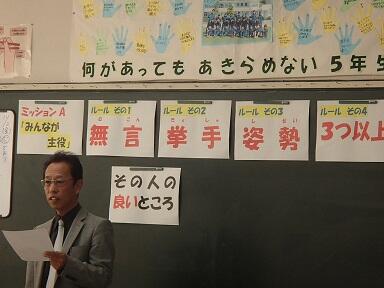 何があっても あきらめない 5年生
ミッションA
「みんなが
主役」
ルール その1
む ごん
無言
ルール その2
きょ しゅ
挙手
ルール その3
し せい
姿勢
ルール その4
3つ以上
その人の
良いところ